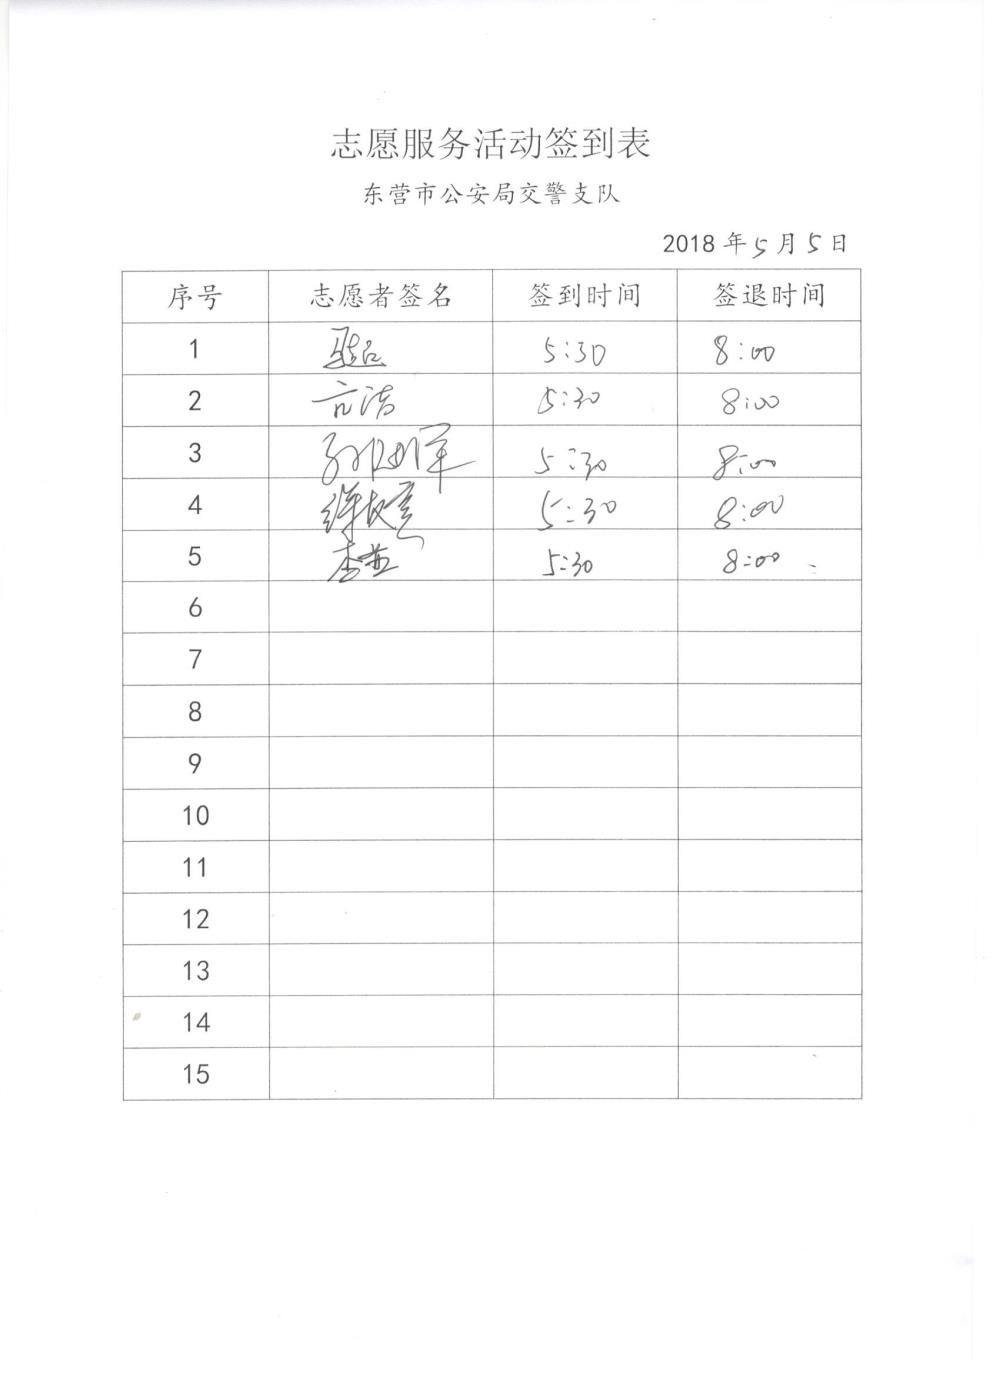 志愿服务活动签到表
东营市公安局交警支队
2018 年 5 月 5 日
序号 志愿者签名 签到时间 签退时间
1 5:30 8:00
2 亓洁 5:30 8:00
3 5:30 8:00
4 5:30 8:00
5 5:30 8:00
6
7
8
9
10
11
12
13
14
15